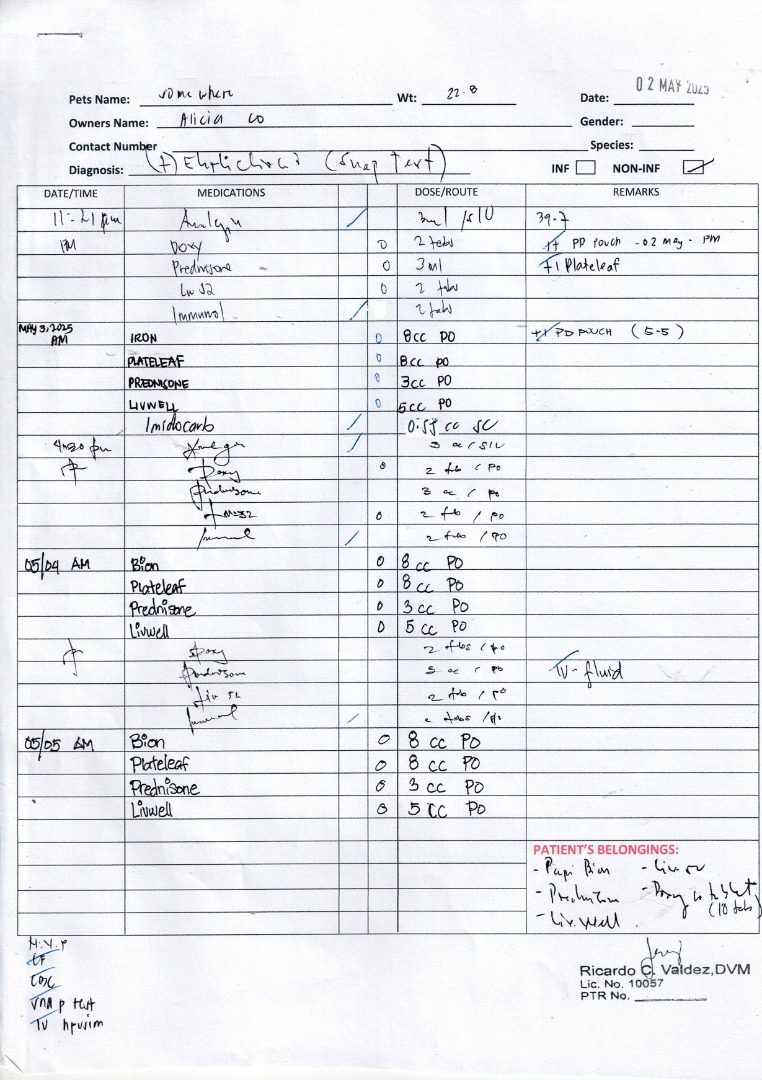 Pets Name: somewhere Wt: 22.8 Date: 02 MAY 2025
Owners Name: Alicia Co Gender:
Contact Number Species:
Diagnosis: (+) Ehrlichiosis (Snap Test) INF NON-INF
DATE/TIME MEDICATIONS DOSE/ROUTE REMARKS
11:21 pm 39.7
PM Doxy 0 2 tabs PD POUCH - 02 may - PM
Prednisone 0 3 ml +1 Plateleaf
Liv 52 0 2 tabs
Immunol 2 tabs
MAY 3, 2025
AM IRON 0 8cc PO +1 PD POUCH (5-5)
PLATELEAF 0 8cc PO
PREDNISONE 0 3cc PO
LIVWELL 0 5cc PO
Imidocarb cc SC
pm
Doxy 0 2 tab / PO
3 cc / PO
0 2 tab / PO
2 tabs / PO
05/04 AM Bion 0 8 cc PO
Plateleaf 0 8 cc PO
Prednisone 0 3 cc PO
Livwell 0 5 cc PO
Doxy 2 tabs / PO
3 cc / PO IV-fluid
Liv 52 2 tab / PO
tabs / PO
05/05 AM Bion 0 8 cc PO
Plateleaf 0 8 cc PO
Prednisone 0 3 cc PO
Livwell 0 5 cc PO
PATIENT'S BELONGINGS:
- Papi Bion - Liv 52
- Prednisone - Doxy tablet
(10 tabs)
- Liv. Well
CF
CBC
snap test
IV
Ricardo C. Valdez, DVM
Lic. No. 10057
PTR No.